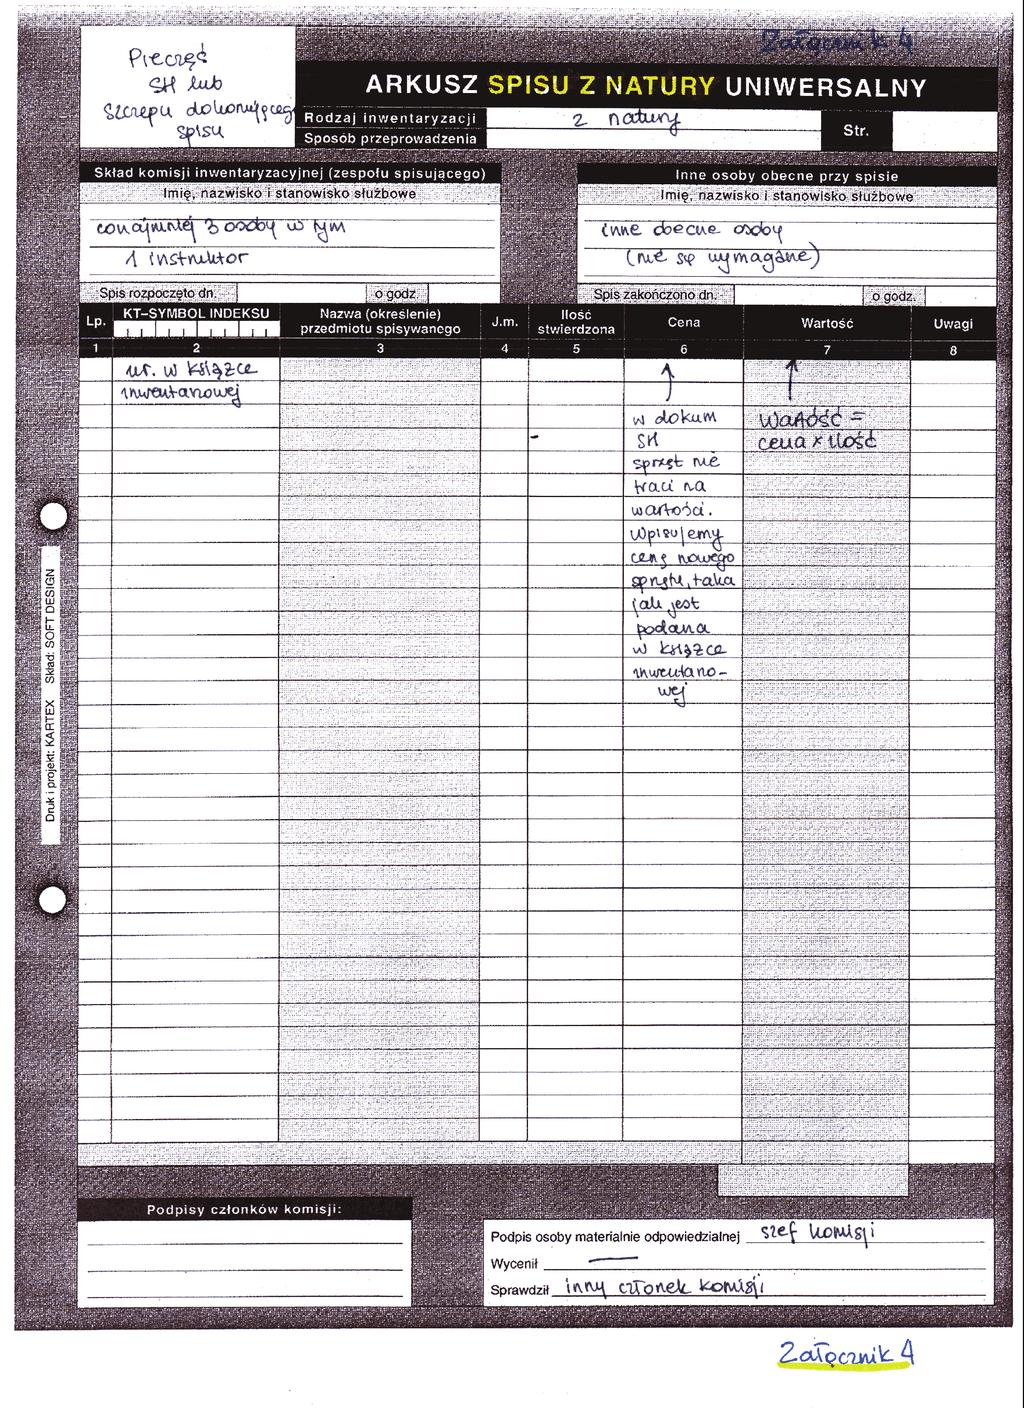 Załącznik 4
Pieczęć
SH lub
szczepu dokonującego
spisu
ARKUSZ SPISU Z NATURY UNIWERSALNY
Rodzaj inwentaryzacji
Sposób przeprowadzenia
z natury
Str.
Skład komisji inwentaryzacyjnej (zespołu spisującego)
Imię, nazwisko i stanowisko służbowe
conajmniej 3 osoby w tym
1 instruktor
Inne osoby obecne przy spisie
Imię, nazwisko i stanowisko służbowe
inne obecne osoby
(nie są wymagane)
Spis rozpoczęto dn. o godz.
Spis zakończono dn. o godz.
Lp. KT–SYMBOL INDEKSU Nazwa (określenie) przedmiotu spisywanego J.m. Ilość stwierdzona Cena Wartość Uwagi
1 2 3 4 5 6 7 8
nr. w książce
inwentarzowej
w dokum
SH
sprzęt nie
traci na
wartości.
Wpisujemy
cenę nowego
sprzętu, taka
jak jest
podana
w książce
inwentarzo-
wej
Wartość =
cena x ilość
Druk i projekt: KARTEX Skład: SOFT DESIGN
Podpisy członków komisji:
Podpis osoby materialnie odpowiedzialnej szef komisji
Wycenił —
Sprawdził inny członek komisji
Załącznik 4